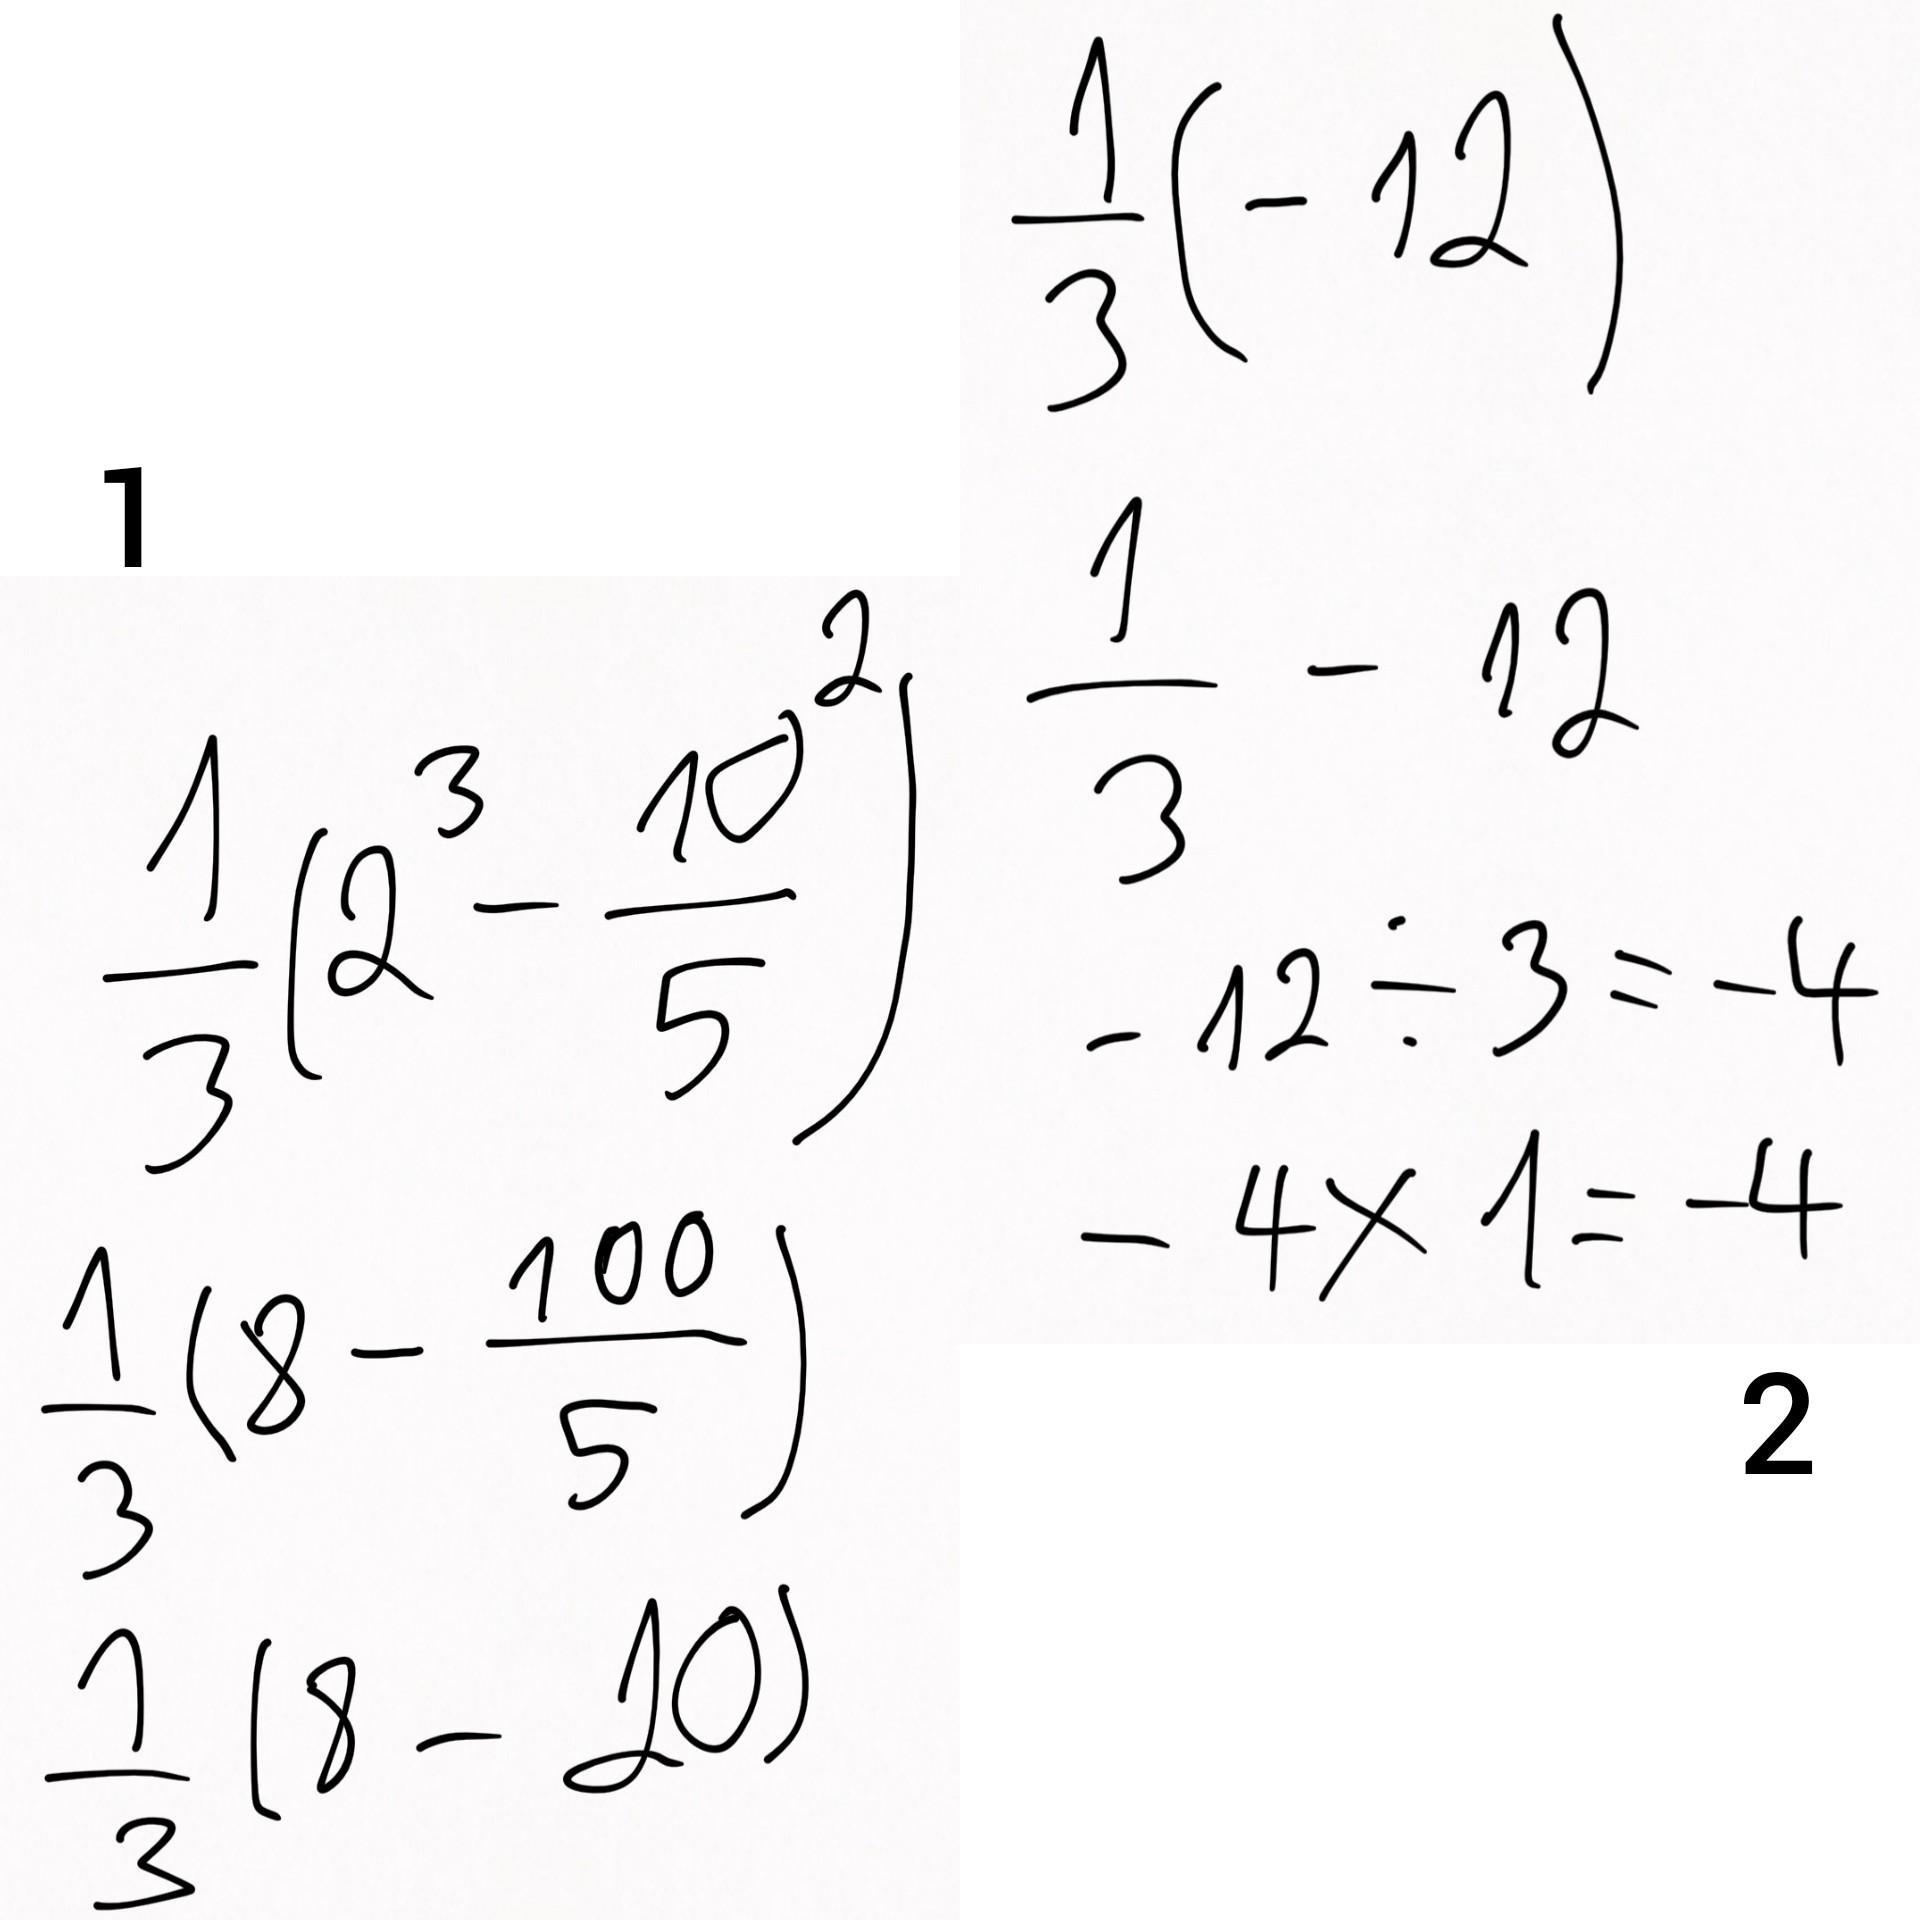 1
1/3 (2^3 - 10^2/5)
1/3 (8 - 100/5)
1/3 (8 - 20)
1/3 (-12)
1/3 - 12
-12 ÷ 3 = -4
-4 × 1 = -4
2